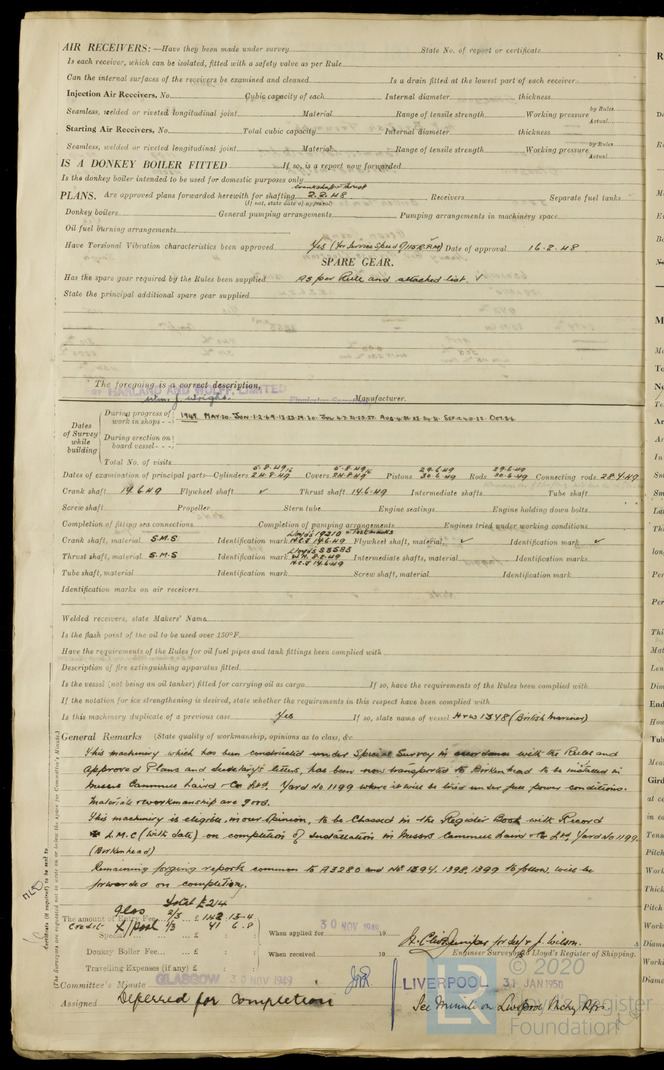 AIR RECEIVERS:—Have they been made under survey State No. of report or certificate
Is each receiver, which can be isolated, fitted with a safety valve as per Rule
Can the internal surfaces of the receivers be examined and cleaned Is a drain fitted at the lowest part of each receiver
Injection Air Receivers, No. Cubic capacity of each Internal diameter thickness
Seamless, welded or riveted longitudinal joint Material Range of tensile strength Working pressure by Rules Actual
Starting Air Receivers, No. Total cubic capacity Internal diameter thickness
Seamless, welded or riveted longitudinal joint Material Range of tensile strength Working pressure by Rules Actual
IS A DONKEY BOILER FITTED If so, is a report now forwarded
Is the donkey boiler intended to be used for domestic purposes only
PLANS. Are approved plans forwarded herewith for shafting crankshaft & thrust 2.2.48 Receivers Separate fuel tanks
(If not, state date of approval)
Donkey boilers General pumping arrangements Pumping arrangements in machinery space
Oil fuel burning arrangements
Have Torsional Vibration characteristics been approved Yes (for Service Speed of 115 R.P.M) Date of approval 16.2.48
SPARE GEAR.
Has the spare gear required by the Rules been supplied As per Rule and attached list. ✓
State the principal additional spare gear supplied
The foregoing is a correct description,
HARLAND AND WOLFF, LIMITED
Wm. J. Wright. Manufacturer.
Dates of Survey while building
During progress of work in shops - - 1949 MAY.20. JUN.1.2.6.9.13.23.29.30.
During erection on board vessel - - -
Total No. of visits
Dates of examination of principal parts—Cylinders 5.8.49 24.8.49 Covers 5.8.49 24.8.49 Pistons 29.6.49 30.6.49 Rods 29.6.49 30.6.49 Connecting rods 28.7.49
Crank shaft 14.6.49 Flywheel shaft ✓ Thrust shaft 14.6.49 Intermediate shafts Tube shaft
Screw shaft Propeller Stern tube Engine seatings Engine holding down bolts
Completion of fitting sea connections Completion of pumping arrangements Engines tried under working conditions
Crank shaft, material S.M.S Identification mark Lloyd's 19210 N.C.J 14.6.49 Flywheel shaft, material ✓ Identification mark ✓
Thrust shaft, material S.M.S Identification mark Lloyd's S3583 W.H. 8.2.49 N.C.J 14.6.49 Intermediate shafts, material Identification marks
Tube shaft, material Identification mark Screw shaft, material Identification mark
Identification marks on air receivers
Welded receivers, state Makers' Name
Is the flash point of the oil to be used over 150°F.
Have the requirements of the Rules for oil fuel pipes and tank fittings been complied with
Description of fire extinguishing apparatus fitted
Is the vessel (not being an oil tanker) fitted for carrying oil as cargo If so, have the requirements of the Rules been complied with
If the notation for ice strengthening is desired, state whether the requirements in this respect have been complied with
Is this machinery duplicate of a previous case Yes If so, state name of vessel H & W 1348 (British Mariner)
General Remarks (State quality of workmanship, opinions as to class, &c.
This machinery which has been constructed under Special Survey in accordance with the Rules and
Approved Plans and Secretary's letters, has been now transported to Birkenhead to be installed in
Messrs Cammell Laird & Co Ltd, Yard No 1199 where it will be tried under full power conditions.
Materials & workmanship are good.
This machinery is eligible, in our opinion, to be Classed in the Register Book with Record
✠ L.M.C (with date) on completion of installation in Messrs Cammell Laird & Co Ltd, Yard No 1199.
(Birkenhead)
Remaining forging reports common to A3280 and Nos 1394, 1398, 1399 to follow, will be
forwarded on completion.
Total £214
The amount of Entry Fee Glas 2/3 £ 142 : 13 - 4
Credit L/pool 1/3 41 6.8
Special £ : :
Donkey Boiler Fee £ : :
Travelling Expenses (if any) £ : :
When applied for 30 NOV 1949 19
When received 19
for self & J. Wilson.
Engineer Surveyor to Lloyd's Register of Shipping.
Committee's Minute GLASGOW 30 NOV 1949
LIVERPOOL 31 JAN 1950
Assigned Deferred for Completion
See Minute on Liverpool Mchy Rpt.
Certificate (if required) to be sent to
(The Surveyors are requested not to write on or below the space for Committee's Minute.)
© 2020
Lloyd's Register
Foundation